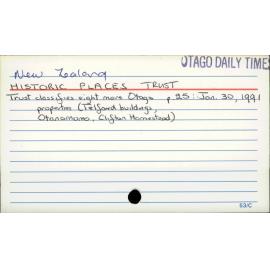 OTAGO DAILY TIMES
New Zealand
HISTORIC PLACES TRUST
Trust classifies eight more Otago p.25: Jan. 30, 1991
properties (Telford buildings,
Otanomomo, Clifton Homestead)
53/C